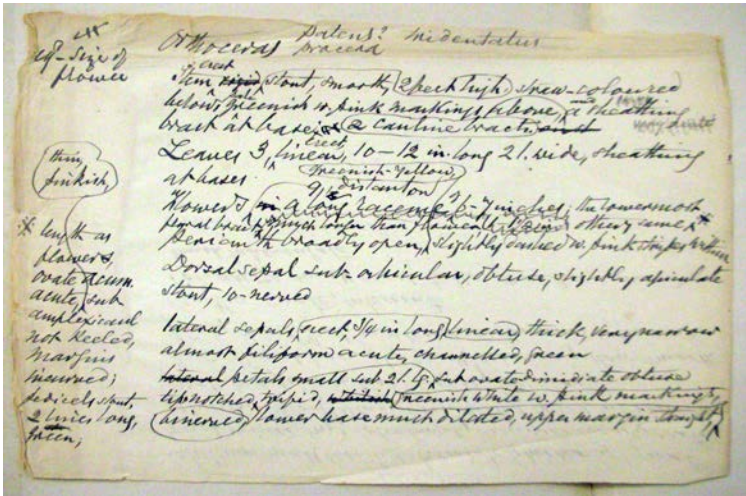 cf. size of
flower
Orthoceras patens? tridentatus
procera
erect
Stem rigid, stout, smooth, 2 feet high, straw-coloured
below, greenish w. pink markings above, a sheathing
bract at base, 2 cauline bracts
erect
Leaves 3, linear, 10–12 in. long 2 l. wide, sheathing
at bases.
greenish-yellow
9, distant on
Flowers in a long raceme 6–7 inches; the lowermost
floral bract much longer than flower others same,
perianth broadly open, slightly dashed w. pink stripes within
Dorsal sepal sub-orbicular, obtuse, slightly apiculate
stout, 10-nerved
lateral sepals, erect, 3/4 in long, linear, thick, very narrow
almost filiform acute, channelled, green
lateral petals small sub 2 l. lg. sub ovate dimidiate obtuse
tip notched, trifid, greenish white w. pink markings,
binerved, lower base much dilated, upper margin straight,
thin,
pinkish,
* length as
flowers,
ovate acum.
acute, sub
amplexicaul
not keeled,
margins
incurved;
pedicels stout,
2 lines long,
green,